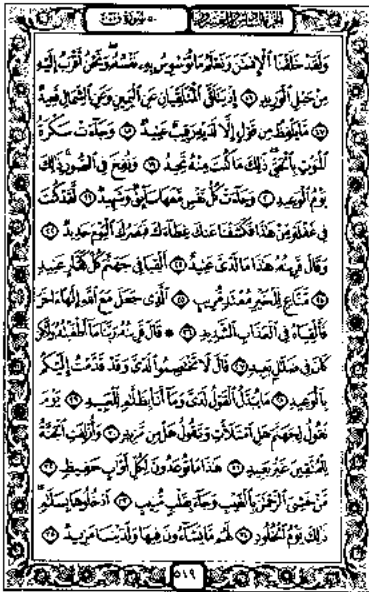 الجزء السادس والعشرون سورة ق ٥٠
وَلَقَدْ خَلَقْنَا الْإِنسَانَ وَنَعْلَمُ مَا تُوَسْوِسُ بِهِ نَفْسُهُ وَنَحْنُ أَقْرَبُ إِلَيْهِ
مِنْ حَبْلِ الْوَرِيدِ ١٦ إِذْ يَتَلَقَّى الْمُتَلَقِّيَانِ عَنِ الْيَمِينِ وَعَنِ الشِّمَالِ قَعِيدٌ
١٧ مَّا يَلْفِظُ مِن قَوْلٍ إِلَّا لَدَيْهِ رَقِيبٌ عَتِيدٌ ١٨ وَجَاءَتْ سَكْرَةُ
الْمَوْتِ بِالْحَقِّ ذَٰلِكَ مَا كُنتَ مِنْهُ تَحِيدُ ١٩ وَنُفِخَ فِي الصُّورِ ذَٰلِكَ
يَوْمُ الْوَعِيدِ ٢٠ وَجَاءَتْ كُلُّ نَفْسٍ مَّعَهَا سَائِقٌ وَشَهِيدٌ ٢١ لَّقَدْ كُنتَ
فِي غَفْلَةٍ مِّنْ هَٰذَا فَكَشَفْنَا عَنكَ غِطَاءَكَ فَبَصَرُكَ الْيَوْمَ حَدِيدٌ ٢٢
وَقَالَ قَرِينُهُ هَٰذَا مَا لَدَيَّ عَتِيدٌ ٢٣ أَلْقِيَا فِي جَهَنَّمَ كُلَّ كَفَّارٍ عَنِيدٍ
٢٤ مَّنَّاعٍ لِّلْخَيْرِ مُعْتَدٍ مُّرِيبٍ ٢٥ الَّذِي جَعَلَ مَعَ اللَّهِ إِلَٰهًا آخَرَ
فَأَلْقِيَاهُ فِي الْعَذَابِ الشَّدِيدِ ٢٦ ۞ قَالَ قَرِينُهُ رَبَّنَا مَا أَطْغَيْتُهُ وَلَٰكِن
كَانَ فِي ضَلَالٍ بَعِيدٍ ٢٧ قَالَ لَا تَخْتَصِمُوا لَدَيَّ وَقَدْ قَدَّمْتُ إِلَيْكُم
بِالْوَعِيدِ ٢٨ مَا يُبَدَّلُ الْقَوْلُ لَدَيَّ وَمَا أَنَا بِظَلَّامٍ لِّلْعَبِيدِ ٢٩ يَوْمَ
نَقُولُ لِجَهَنَّمَ هَلِ امْتَلَأْتِ وَتَقُولُ هَلْ مِن مَّزِيدٍ ٣٠ وَأُزْلِفَتِ الْجَنَّةُ
لِلْمُتَّقِينَ غَيْرَ بَعِيدٍ ٣١ هَٰذَا مَا تُوعَدُونَ لِكُلِّ أَوَّابٍ حَفِيظٍ ٣٢
مَّنْ خَشِيَ الرَّحْمَٰنَ بِالْغَيْبِ وَجَاءَ بِقَلْبٍ مُّنِيبٍ ٣٣ ادْخُلُوهَا بِسَلَامٍ
ذَٰلِكَ يَوْمُ الْخُلُودِ ٣٤ لَهُم مَّا يَشَاءُونَ فِيهَا وَلَدَيْنَا مَزِيدٌ ٣٥
٥١٩